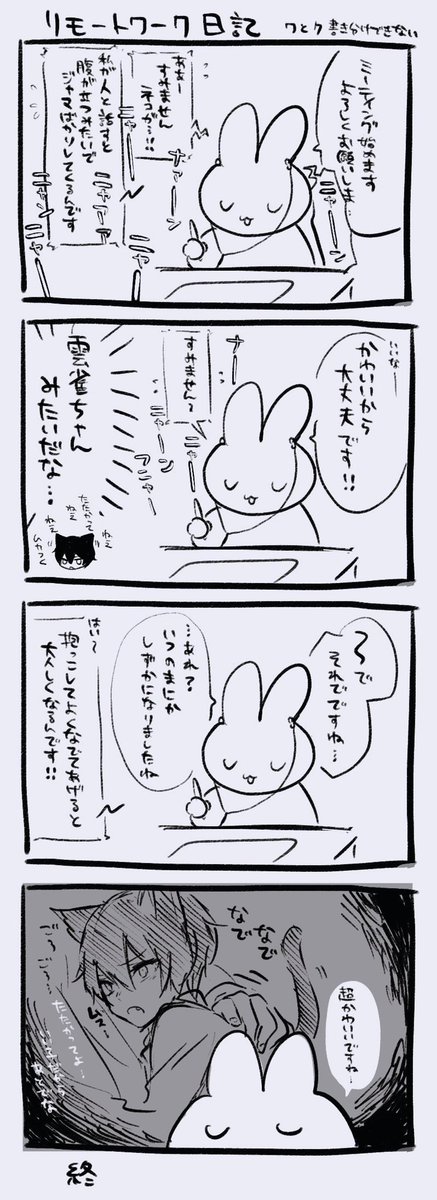 リモートワーク日記
ワとク 書き分けできない
ミーティング始めます
よろしくお願いしま…
ニャーン
ああー
すみません
ネコが…!!
ナァーン
私が人と話すと
腹が立つみたいで
ジャマばかりしてくるんです
ニャーン
ニャーン
ニャー
いいなー
かわいいから
大丈夫です!!
ナー
すみません〜
ニャーン
フニャー
雲雀ちゃん
みたいだな…
ねえ
ねえ
たたかって
ねえ
ムカつく
〜で
それでですね…
…あれ？
いつのまにか
しずかになりましたね
はい〜
抱っこしてよくなでてあげると
大人しくなるんです!!
超かわいいですね…
なで
なで
ムス…
ごろ
ごろ…
たたかってよ…
終